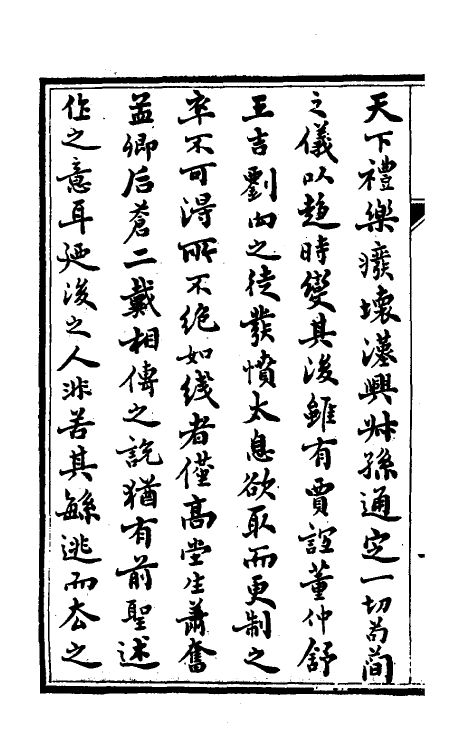 天下禮樂癈壞漢興叔孫通定一切苟簡
之儀以趋時變其後雖有賈誼董仲舒
王吉劉向之徒發憤太息欲取而更制之
卒不可得所不绝如线者僅髙堂生蕭奮
孟卿后蒼二戴相傳之説猶有前聖述
作之意耳延後之人非苦其繇逃而去之